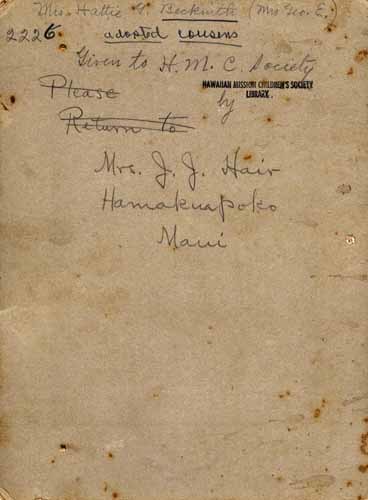 Mrs. Hattie G. Beckwith (Mrs Geo. E.)
2226. adopted cousins
Given to H. M. C. Society
HAWAIIAN MISSION CHILDREN'S SOCIETY
LIBRARY.
by
Please
Return to
Mrs. J. J. Hair
Hamakuapoko
Maui